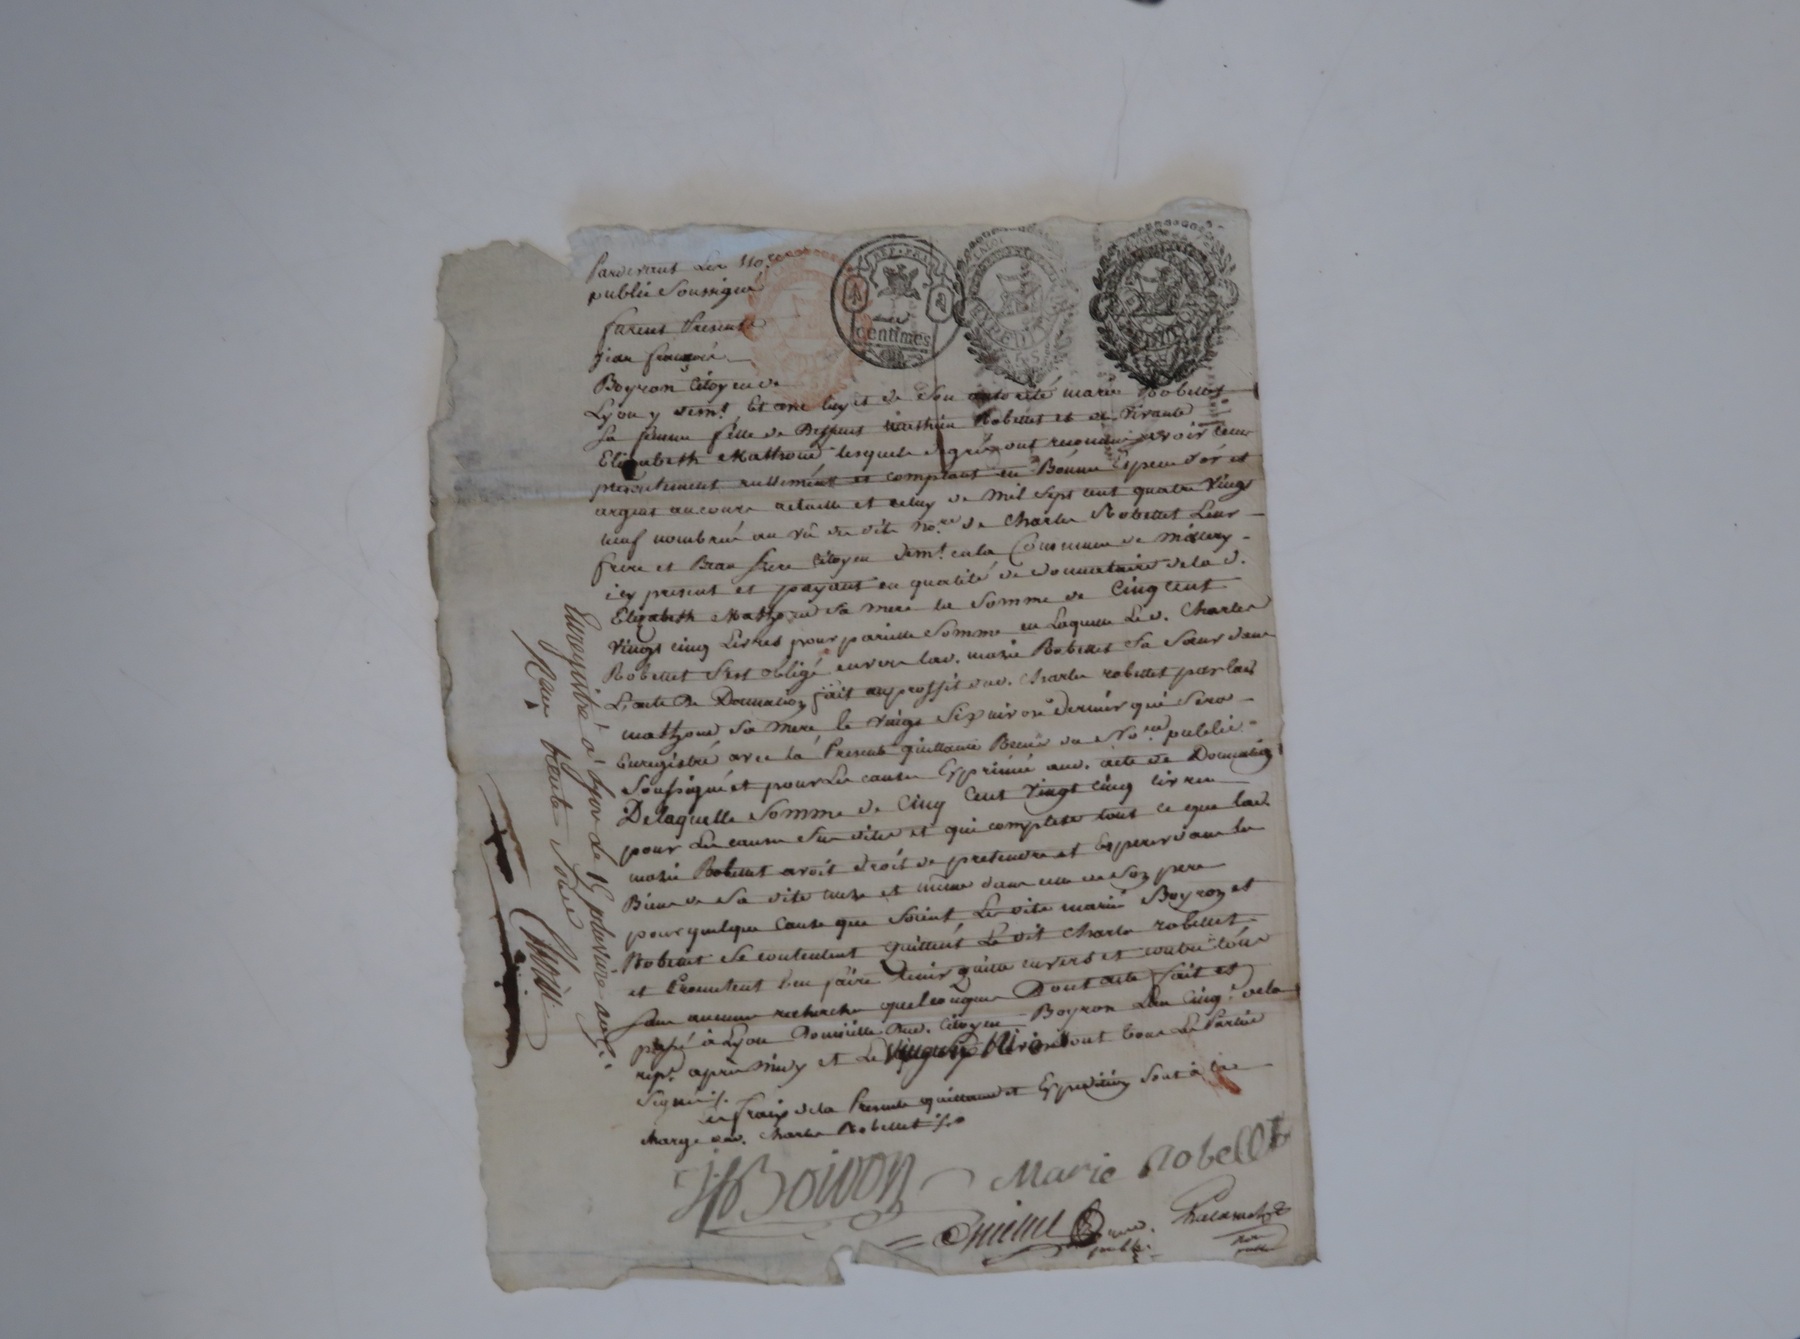 Pardevant Les No.res
publics Soussignés
furent Presents
jean françois
Boyron Citoyen de
Lyon y dem.t Et avec luy et de Son autorité marie Robellet
Sa femme fille de Deffunt mathieu Robellet et de vivante
Elizabeth Mathoud lesquels de gré ont reconnu avoir
présentement réellement et comptant en Bonnes Espèces d'or et
argent au cours actuelle et celuy de mil Sept cent quatre Vingt
neuf nombrée au vû des dits no.res de Charles Robellet Leur
frere et Beau frere Citoyen dem.t en la Commune de
icy present et payant en qualité de donnataire de la d.
Elizabeth Mathoud Sa mere la Somme de Cinq Cent
Vingt cinq Livres pour pareille Somme en Laquelle Le d. Charles
Robellet S'est obligé envers lad. marie Robellet Sa Sœur dans
L'acte De Donnation fait au proffit dud. Charles robellet par lad.
mathoud Sa mere le vingt Six nivose dernier qui Sera
Enregistré avec la Presente quittance Recue du No.re public
Soussigné et pour Les causes Exprimé aud. acte de Donnation
De laquelle Somme de Cinq Cent Vingt Cinq livres
pour Les causes Sus dites et qui complete tout ce que lad.
marie Robellet avoit droit de pretendre et Esperer dans les
Biens de Sa dite mere et même dans ceux de Son pere
pour quelque Cause que Soient Les dits mariés Boyron et
Robellet Se contentent quittent Le dit Charles robellet
et Promettent l'en faire tenir quitte envers et contre tous
Sans aucunes recherches quelconques Dont acte fait et
passé à Lyon Domicille dud. Citoyen Boyron L'an Cinq.e de la
rep.e après midy et Le ont tous Les Parties
Signé ./.
Les fraix de la Presente quittance et Expedition Sont à la
charge dud. Charles Robellet ./.
Boivon
Marie Robellet
no.re
public
Enregistré à Lyon le pluviose an 5.
Reçu trente Sols
REP. FRA.
centimes